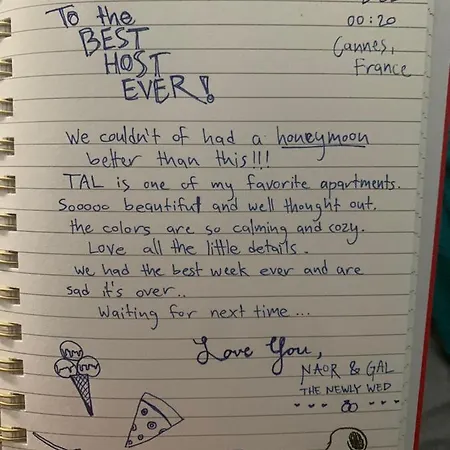 To the
BEST
HOST
EVER!
00:20
Cannes,
France
We couldn't of had a honeymoon
better than this!!!
TAL is one of my favorite apartments.
Sooooo beautiful and well thought out.
the colors are so calming and cozy.
Love all the little details.
we had the best week ever and are
sad it's over..
Waiting for next time...
Love You,
NAOR & GAL
THE NEWLY WED